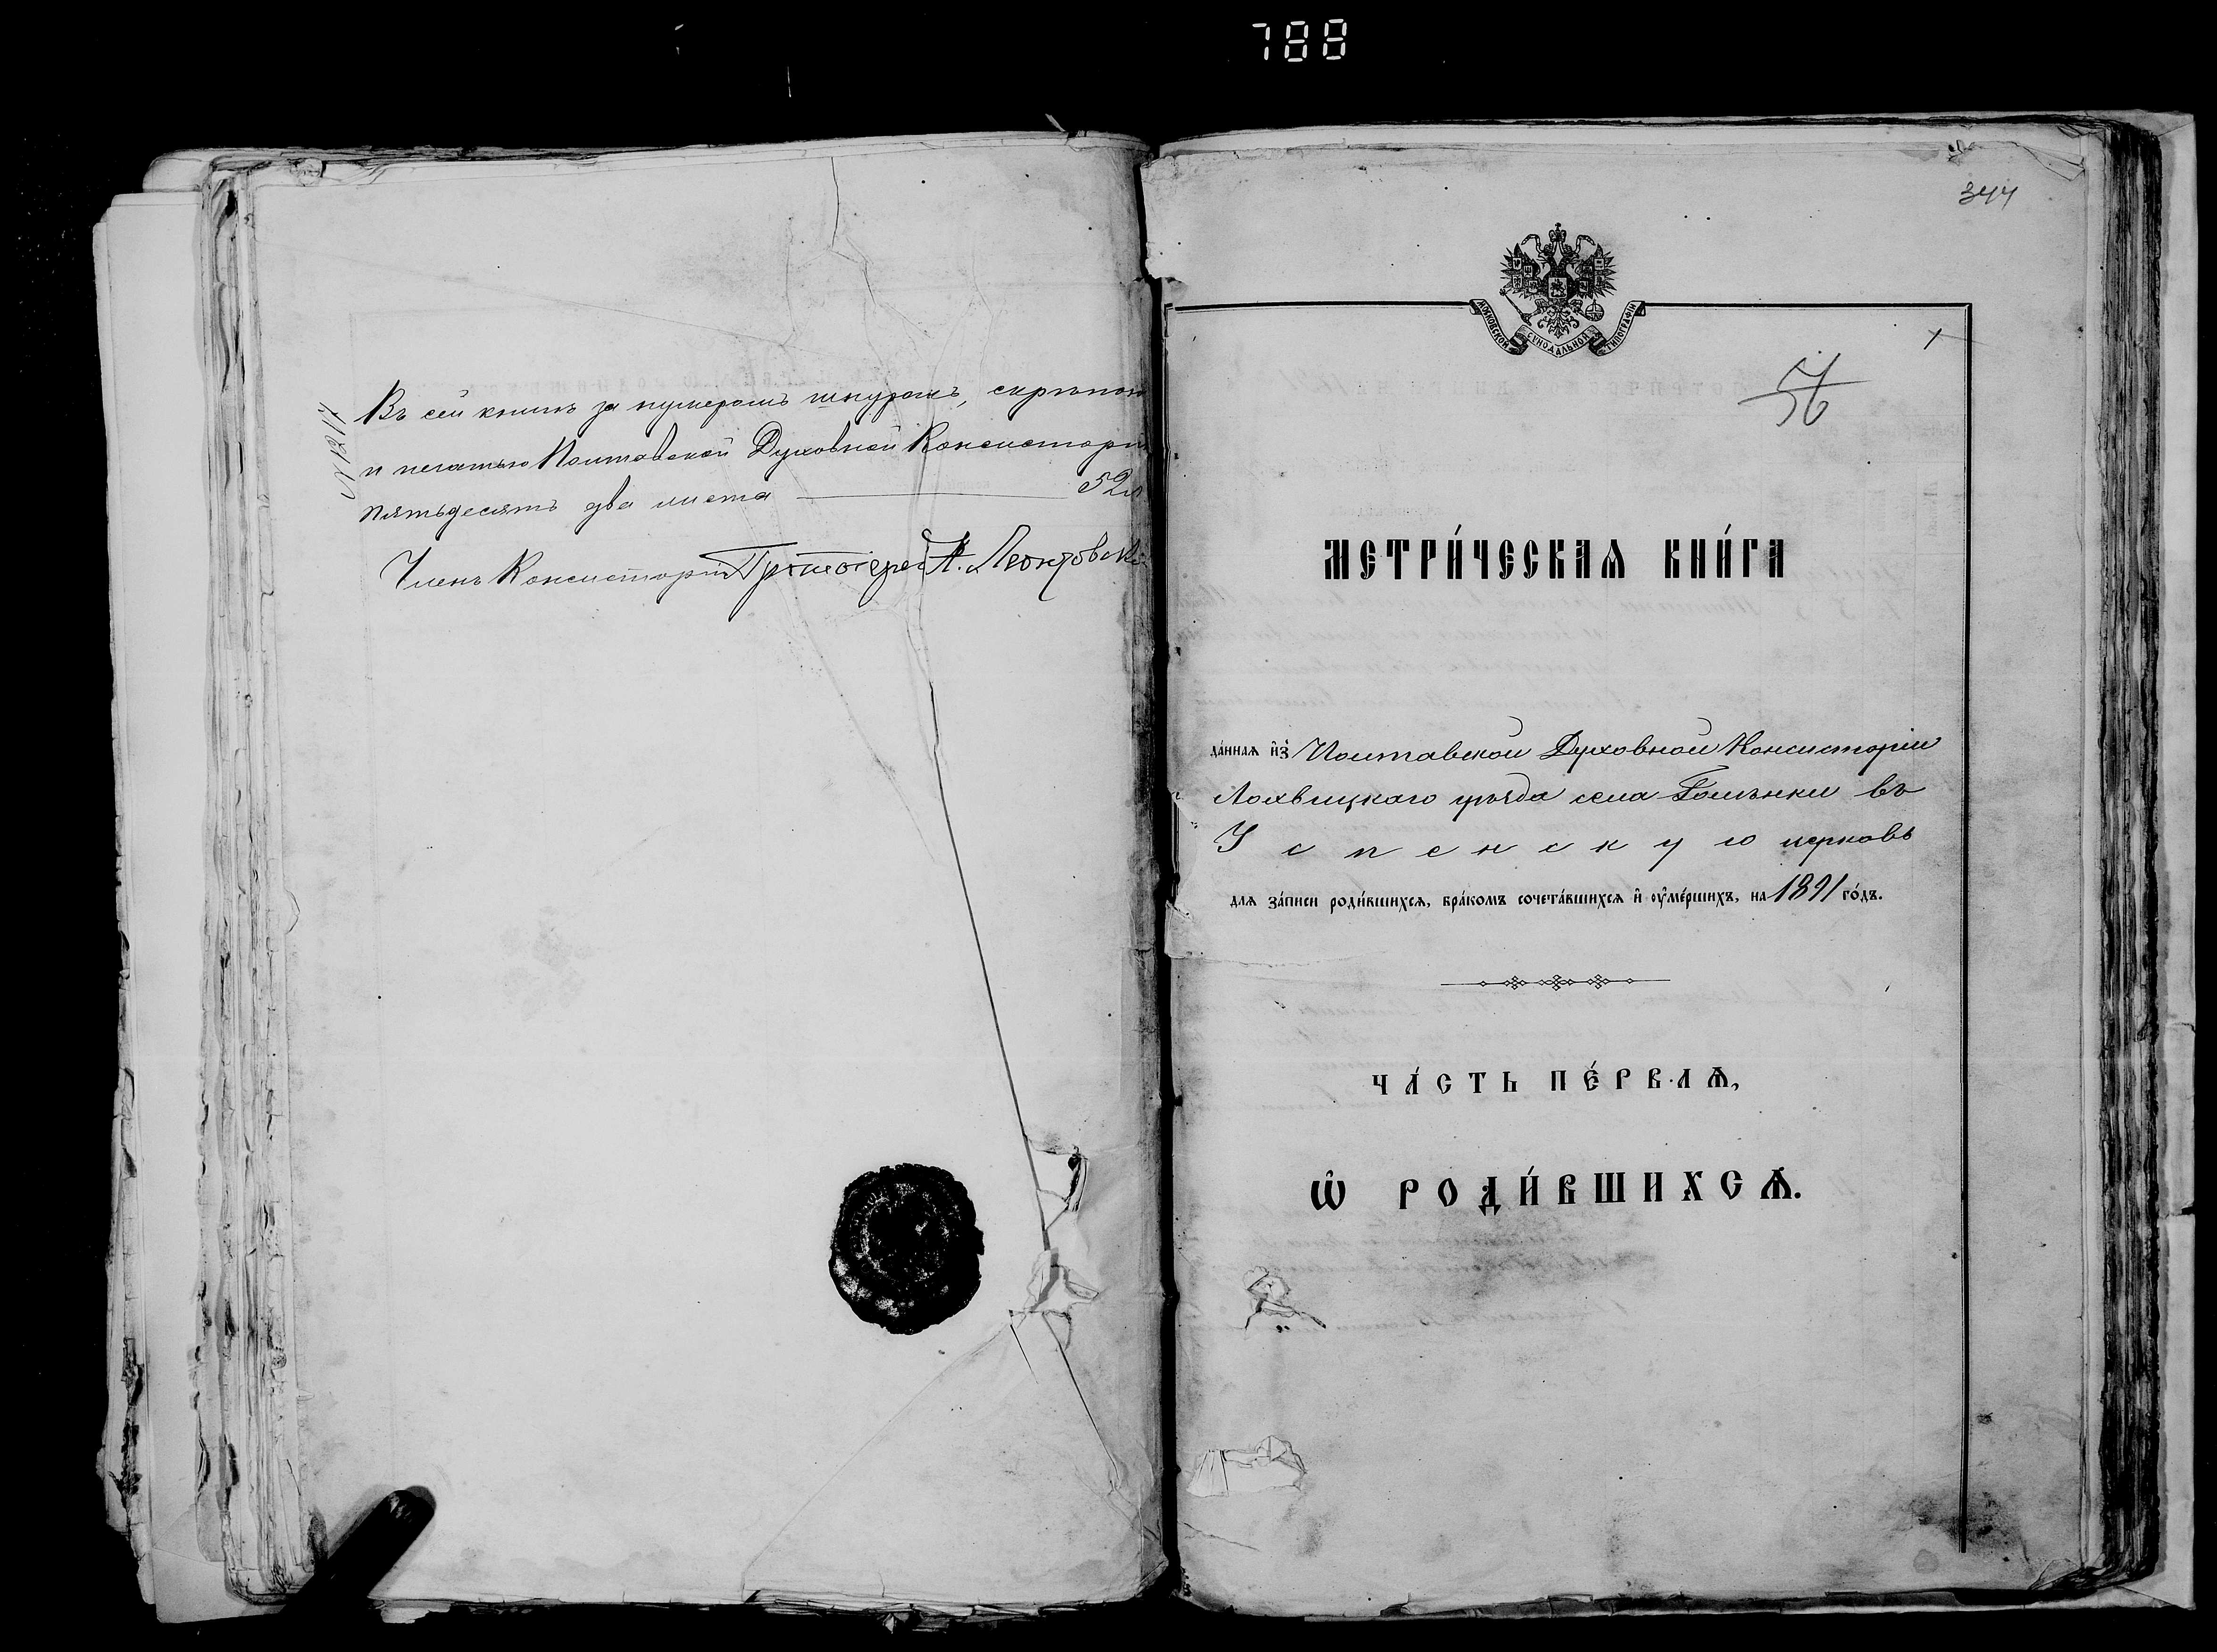 788
№ 1217
Въ сей книгѣ за нумеромъ шнуромъ, скрѣпою
и печатью Полтавской Духовной Консисторіи
пятьдесятъ два листа 52л
Членъ Консисторіи Протоіерей А. Леонтовск
344
МОСКОВСКОЙ СѴНОДАЛЬНОЙ ТИПОГРАФІИ
1
56
МЕТРИ́ЧЕСКАѦ КНИ́ГА
да́ннаѧ и҆з̾ Полтавской Духовной Консисторіи
Лохвицкаго уѣзда села Голѣнки въ
Успенскую церковь
длѧ за́писи роди́вшихсѧ, бра́комъ сочета́вшихсѧ и҆ ᲂу҆ме́ршихъ, на 1891 го́дъ.
ЧА́СТЬ ПЕ́РВАѦ,
Ѡ҆ РОДИ́ВШИХСѦ.